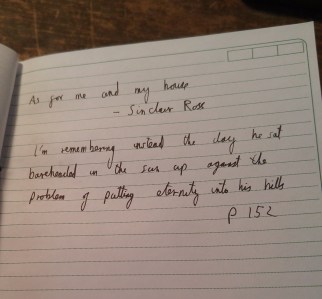 As for me and my house
- Sinclair Ross
I'm remembering instead the day he sat
bareheaded in the sun up against the
problem of putting eternity into his hills
p 152